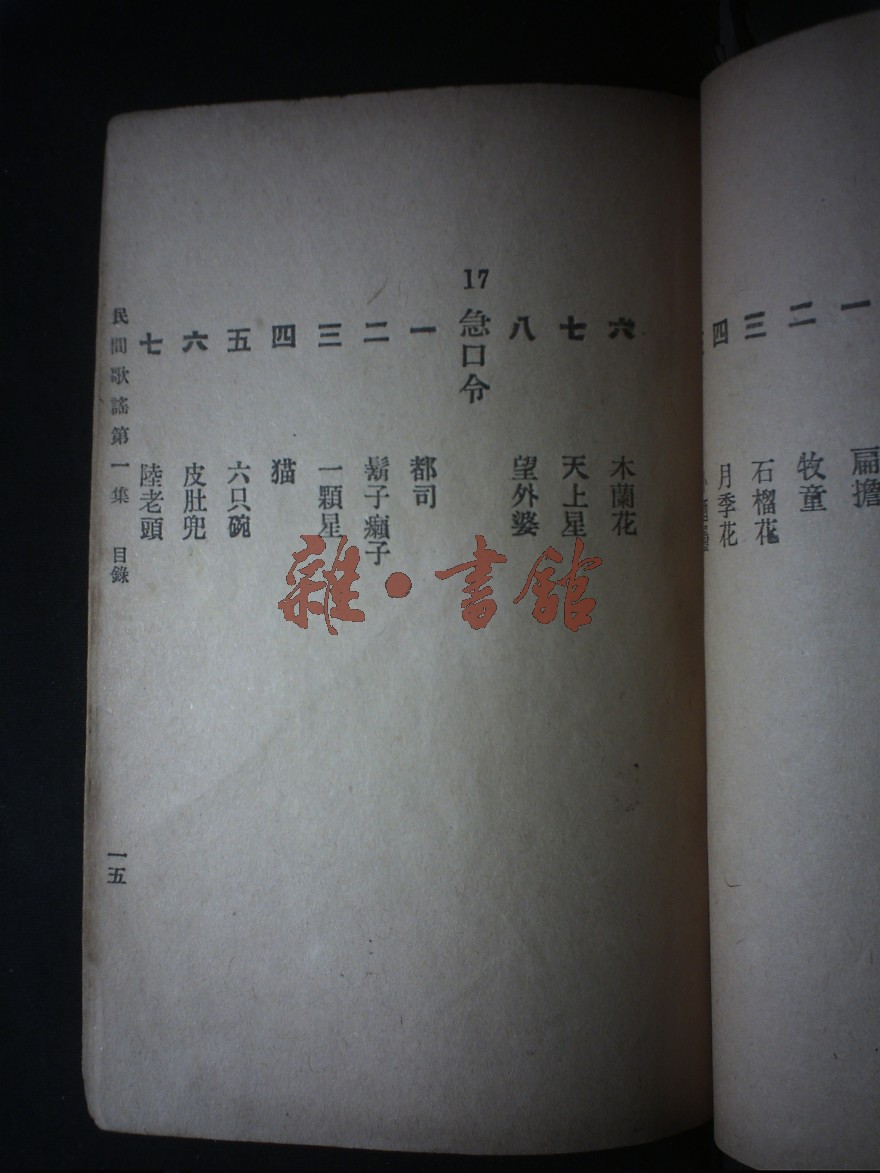 一 扁擔
二 牧童
三 石榴花
四 月季花
六 木蘭花
七 天上星
八 望外婆
17 急口令
一 都司
二 鬍子癩子
三 一顆星
四 猫
五 六只碗
六 皮肚兜
七 陸老頭
民間歌謠第一集 目錄
一五
雜·書館